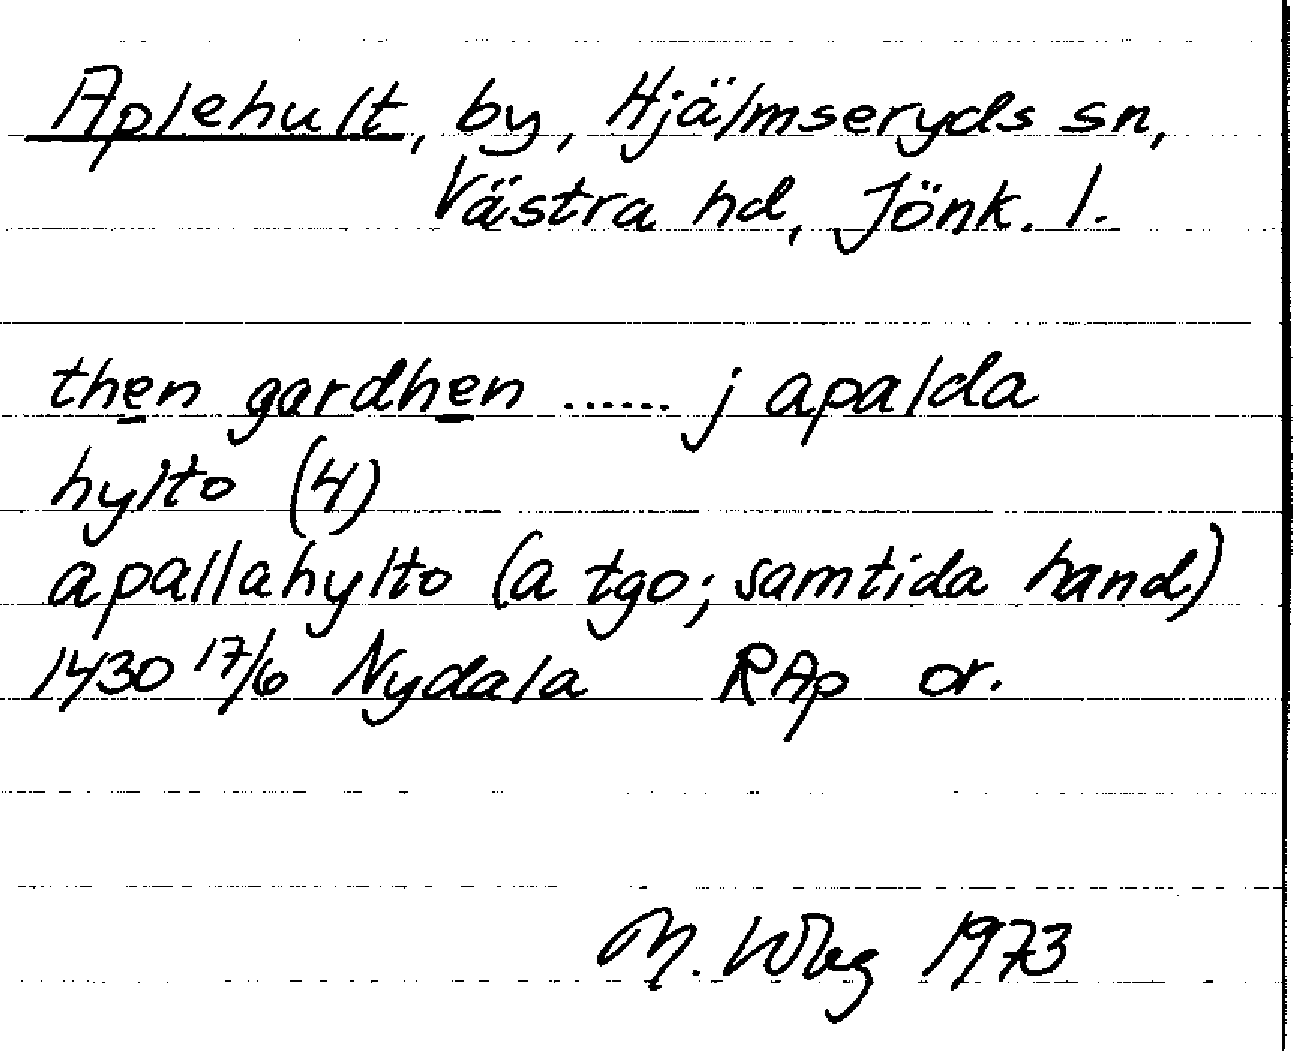 Aplehult, by, Hjälmseryds sn,
Västra hd, Jönk. l.
then gardhen ...... j apalda
hylto (4)
apallahylto (a tgo; samtida hand)
1430 17/6 Nydala RAp or.
M. Wbg 1973